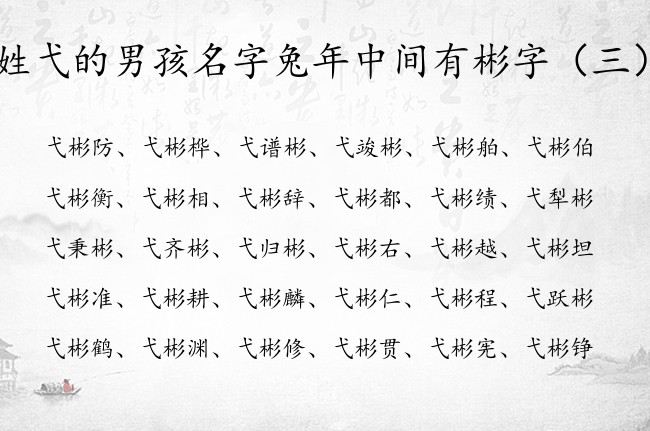 姓弋的男孩名字兔年中间有彬字（三）
弋彬防、弋彬桦、弋谱彬、弋竣彬、弋彬舶、弋彬伯
弋彬衡、弋彬相、弋彬辞、弋彬都、弋彬绩、弋犁彬
弋秉彬、弋齐彬、弋归彬、弋彬右、弋彬越、弋彬坦
弋彬准、弋彬耕、弋彬麟、弋彬仁、弋彬程、弋跃彬
弋彬鹤、弋彬渊、弋彬修、弋彬贯、弋彬宪、弋彬铮